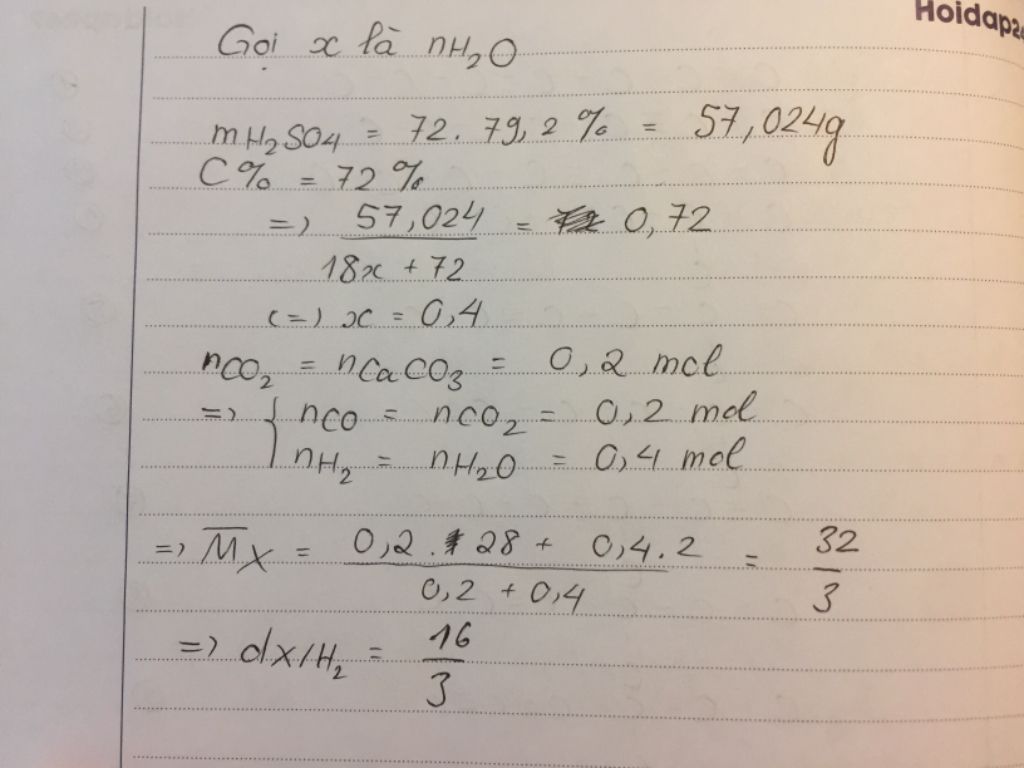 Hoidap24
Gọi x là nH2O
mH2SO4 = 72. 79,2 % = 57,024g
C% = 72 %
=) 57,024 / 18x + 72 = 0,72
(=) x = 0,4
nCO2 = nCaCO3 = 0,2 mol
=) { nCO = nCO2 = 0,2 mol
nH2 = nH2O = 0,4 mol
=) M̅X = 0,2 . 28 + 0,4.2 / 0,2 + 0,4 = 32 / 3
=) dX/H2 = 16 / 3